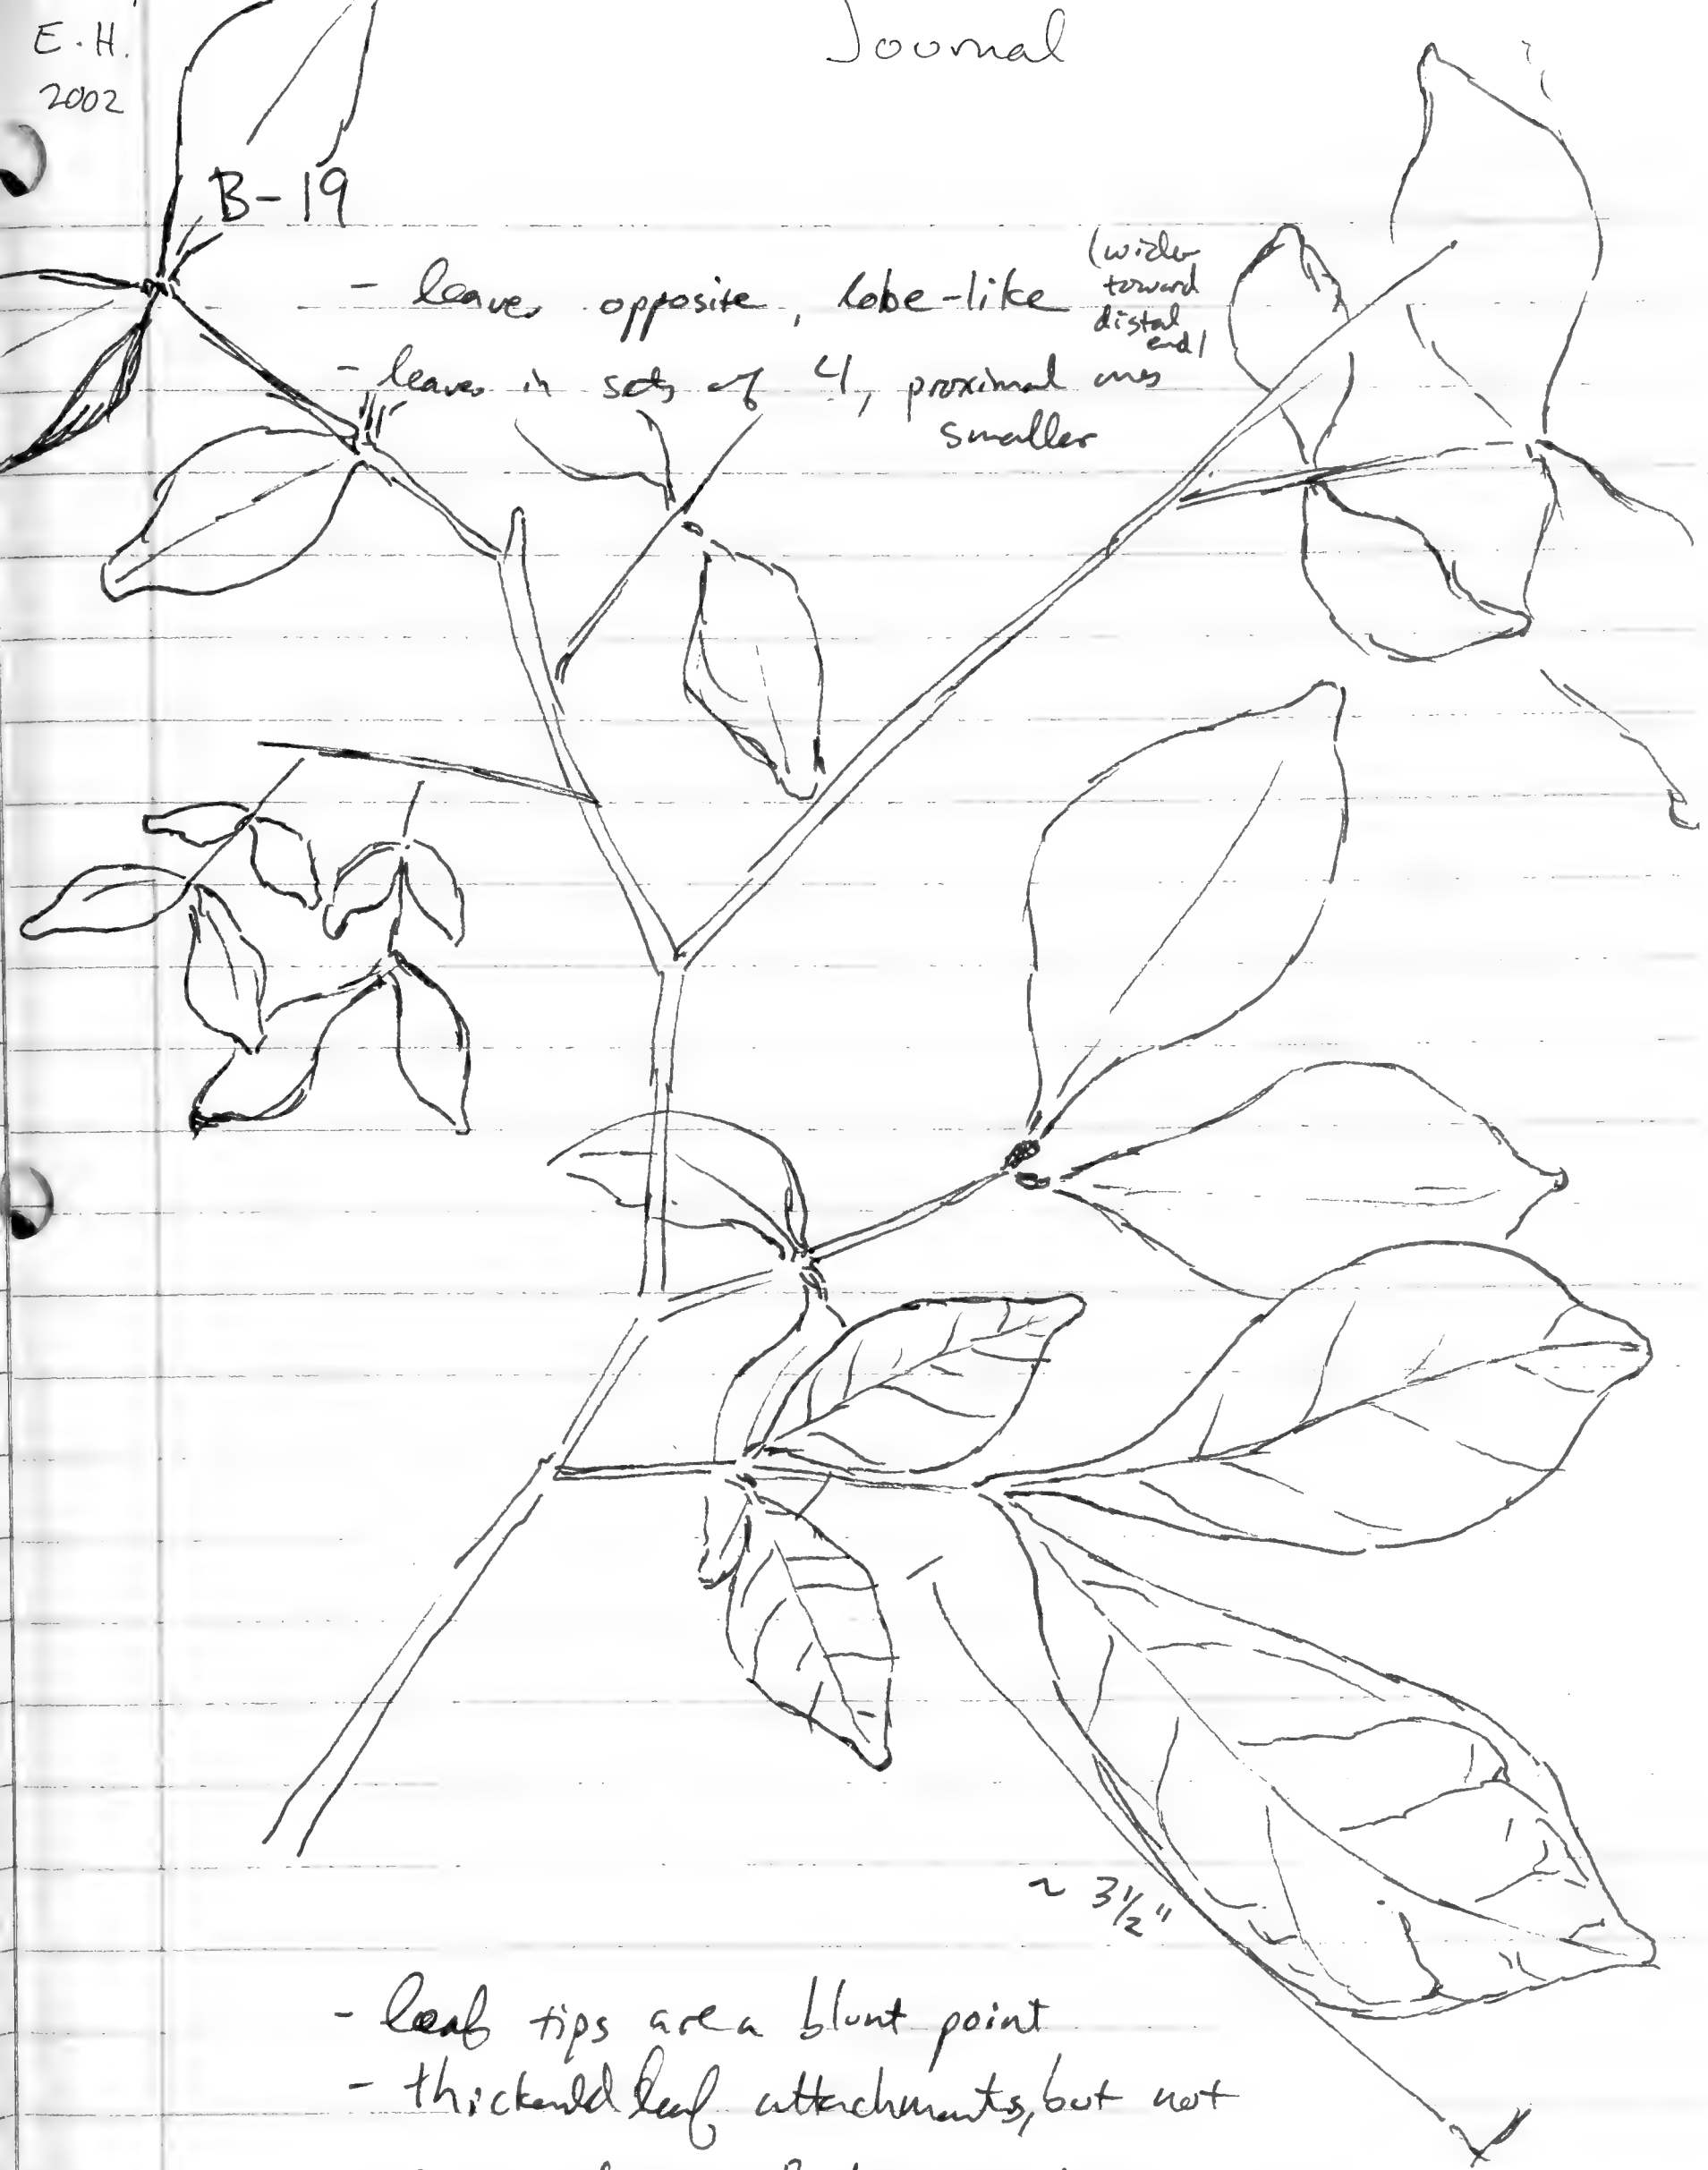 E.H.
2002
Journal
B-19
- leaves opposite, lobe-like (wider toward distal end)
- leaves in sets of 4, proximal ones
smaller
~ 3 1/2"
- leaf tips are a blunt point
- thickened leaf attachments, but not